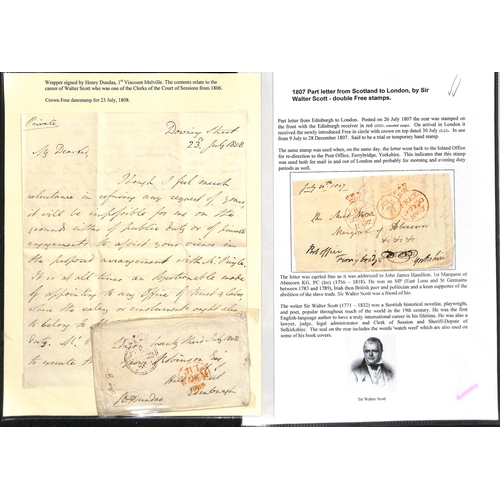 Wrapper signed by Henry Dundas, 1st Viscount Melville. The contents relate to the
career of Walter Scott who was one of the Clerks of the Court of Sessions from 1806.
Crown Free datestamp for 23 July, 1808.
Private
Downing Street
23 July 1808
My Dear Sir,
Though I feel much
reluctance in refusing any request of yours,
it will be impossible for me on the
grounds either of public duty or of private
engagements to assist your views in
the proposed arrangement with
It is at all times an objectionable mode
of appointing to any Office of trust & labor
the salary or emoluments ought
to belong to
to execute
London twenty third July 1808
Robinson Esq
Street
Edinburgh
HDundas
1807 Part letter from Scotland to London, by Sir
Walter Scott - double Free stamps.
Part letter from Edinburgh to London. Posted on 26 July 1807 the rear was stamped on
the front with the Edinburgh receiver in red. On arrival in London it
received the newly introduced Free in circle with crown on top dated 30 July. In use
from 9 July to 28 December 1807. Said to be a trial or temporary hand stamp.
The same stamp was used when, on the same day, the letter went back to the Inland Office
for re-direction to the Post Office, Ferrybridge, Yorkshire. This indicates that this stamp
was used both for mail in and out of London and probably for morning and evening
duty periods as well.
July 30th 1807
The Most Noble
Marquis of Abercorn
&c &c &c
Post office
Ferrybridge
Yorkshire
The letter was carried free as it was addressed to John James Hamilton, 1st Marquess of
Abercorn KG, PC (Ire) (1756 – 1818). He was an MP (East Looe and St Germains
between 1783 and 1789), Irish then British peer and politician and a keen supporter of the
abolition of the slave trade. Sir Walter Scott was a friend of his.
The writer Sir Walter Scott (1771 – 1832) was a Scottish historical novelist, playwright,
and poet, popular throughout much of the world in the 19th century. He was the first
English-language author to have a truly international career in his lifetime. He was also a
lawyer, judge, legal administrator and Clerk of Session and Sheriff-Depute of
Selkirkshire. The seal on the rear includes the words 'watch weel' which are also used on
some of his book covers.
Sir Walter Scott